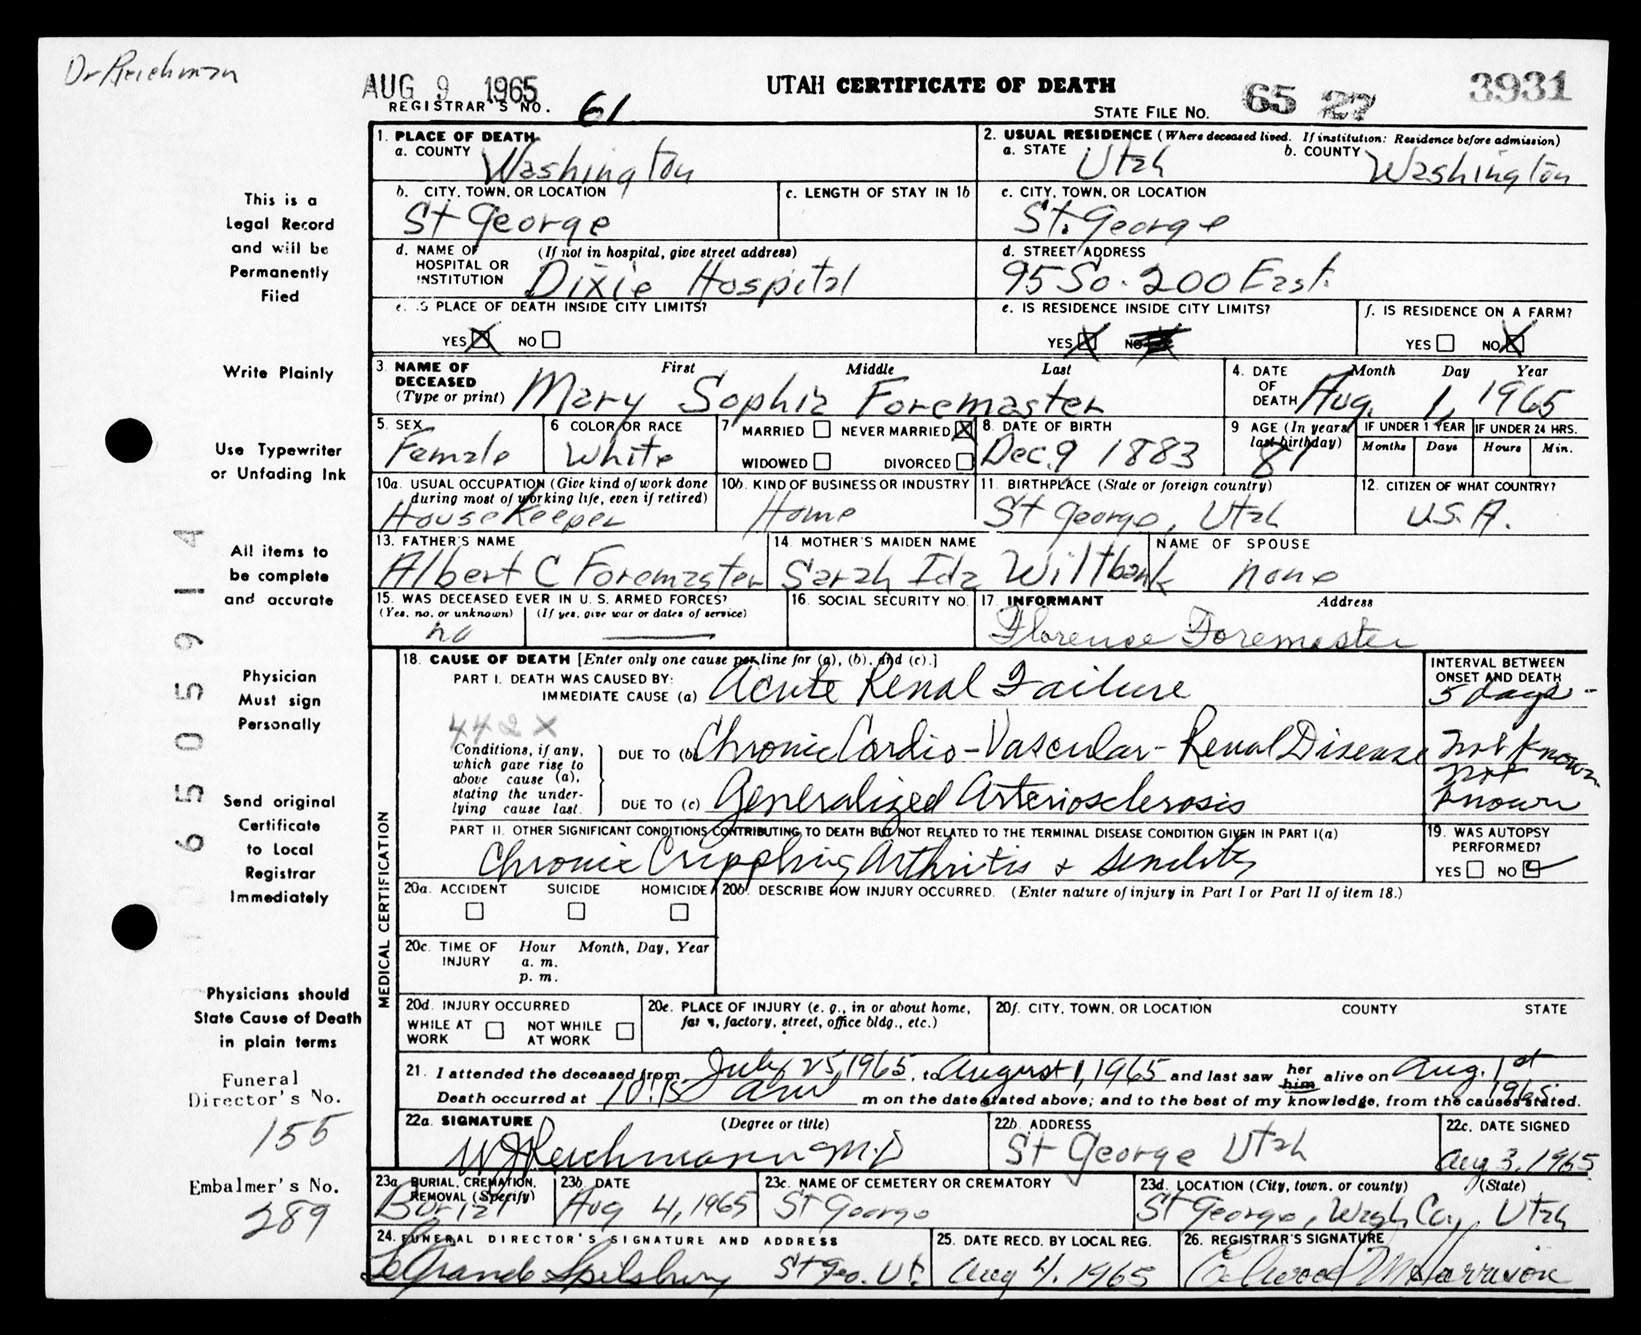 Dr Reichman
AUG 9 1965
UTAH CERTIFICATE OF DEATH
3931
REGISTRAR'S NO. 61
STATE FILE NO. 65 27
1. PLACE OF DEATH
a. COUNTY Washington
2. USUAL RESIDENCE (Where deceased lived. If institution: Residence before admission)
a. STATE Utah b. COUNTY Washington
b. CITY, TOWN, OR LOCATION St George
c. LENGTH OF STAY IN 1b
c. CITY, TOWN, OR LOCATION St. George
d. NAME OF HOSPITAL OR INSTITUTION (If not in hospital, give street address) Dixie Hospital
d. STREET ADDRESS 95 So. 200 East.
e. IS PLACE OF DEATH INSIDE CITY LIMITS?
YES X NO
e. IS RESIDENCE INSIDE CITY LIMITS?
YES X NO
f. IS RESIDENCE ON A FARM?
YES NO X
3. NAME OF DECEASED (Type or print) First Middle Last
Mary Sophia Foremaster
4. DATE OF DEATH Month Day Year
Aug. 1, 1965
5. SEX Female
6 COLOR OR RACE White
7 MARRIED NEVER MARRIED X
WIDOWED DIVORCED
8. DATE OF BIRTH Dec. 9 1883
9 AGE (In years last birthday) 81
IF UNDER 1 YEAR Months Days
IF UNDER 24 HRS. Hours Min.
10a. USUAL OCCUPATION (Give kind of work done during most of working life, even if retired) Housekeeper
10b. KIND OF BUSINESS OR INDUSTRY Home
11. BIRTHPLACE (State or foreign country) St George, Utah
12. CITIZEN OF WHAT COUNTRY? U.S.A.
13. FATHER'S NAME Albert C Foremaster
14. MOTHER'S MAIDEN NAME Sarah Ida Wiltbank
NAME OF SPOUSE none
15. WAS DECEASED EVER IN U. S. ARMED FORCES?
(Yes, no, or unknown) (If yes, give war or dates of service)
no
16. SOCIAL SECURITY NO.
17. INFORMANT Address
Florence Foremaster
18. CAUSE OF DEATH [Enter only one cause per line for (a), (b), and (c).]
PART I. DEATH WAS CAUSED BY:
IMMEDIATE CAUSE (a) Acute Renal Failure
INTERVAL BETWEEN ONSET AND DEATH
5 days -
442X
Conditions, if any, which gave rise to above cause (a), stating the underlying cause last.
DUE TO (b) Chronic Cardio-Vascular-Renal Disease
not known
DUE TO (c) Generalized Arteriosclerosis
not known
PART II. OTHER SIGNIFICANT CONDITIONS CONTRIBUTING TO DEATH BUT NOT RELATED TO THE TERMINAL DISEASE CONDITION GIVEN IN PART I(a)
Chronic Crippling Arthritis & Senility
19. WAS AUTOPSY PERFORMED?
YES NO
20a. ACCIDENT SUICIDE HOMICIDE
20b. DESCRIBE HOW INJURY OCCURRED. (Enter nature of injury in Part I or Part II of item 18.)
20c. TIME OF INJURY Hour Month, Day, Year
a. m.
p. m.
20d. INJURY OCCURRED
WHILE AT WORK NOT WHILE AT WORK
20e. PLACE OF INJURY (e. g., in or about home, farm, factory, street, office bldg., etc.)
20f. CITY, TOWN, OR LOCATION COUNTY STATE
21. I attended the deceased from July 25, 1965, to August 1, 1965 and last saw her him alive on Aug. 1st 1965.
Death occurred at 10:15 am m on the date stated above; and to the best of my knowledge, from the causes stated.
22a. SIGNATURE (Degree or title)
W J Reichmann M.D
22b. ADDRESS St George Utah
22c. DATE SIGNED Aug 3, 1965
23a. BURIAL, CREMATION, REMOVAL (Specify) Burial
23b. DATE Aug 4, 1965
23c. NAME OF CEMETERY OR CREMATORY St George
23d. LOCATION (City, town, or county) (State)
St George, Wash Co., Utah
24. FUNERAL DIRECTOR'S SIGNATURE AND ADDRESS
LeGrande Spilsbury St Geo. Ut.
25. DATE RECD. BY LOCAL REG. Aug 4. 1965
26. REGISTRAR'S SIGNATURE
MEDICAL CERTIFICATION
This is a
Legal Record
and will be
Permanently
Filed
Write Plainly
Use Typewriter
or Unfading Ink
All items to
be complete
and accurate
Physician
Must sign
Personally
Send original
Certificate
to Local
Registrar
Immediately
Physicians should
State Cause of Death
in plain terms
Funeral
Director's No.
155
Embalmer's No.
289
6505914